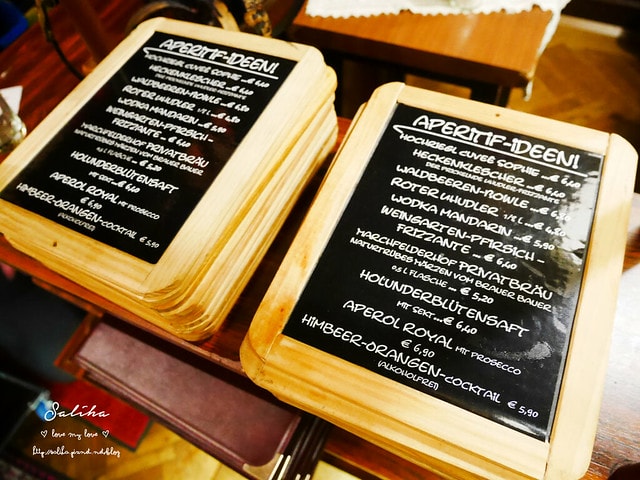 APERITIF-IDEEN!
HOCHRIEGL CUVEÉ SOPHIE ...€ 6,40
HECKENKLESCHER ...€ 6,40
WALDBEEREN-BOWLE ...€ 6,40
ROTER UHUDLER 1/8 L ...€ 4,20
WODKA MANDARIN ...€ 5,90
WEINGARTEN-PFIRSICH-
FRIZZANTE ...€ 6,40
MARCHFELDERHOF PRIVATBRÄU
NATURTRÜBES MÄRZEN VOM BRAUER BAUER
0,5 L FLASCHE ...€ 5,20
HOLUNDERBLÜTENSAFT
MIT SEKT...€ 6,40
APEROL ROYAL MIT PROSECCO
€ 6,90
HIMBEER-ORANGEN-COCKTAIL
(ALKOHOLFREI) € 5,90
APERITIF-IDEEN!
HOCHRIEGL CUVEÉ SOPHIE ...€ 6,40
HECKENKLESCHER ...€ 6,40
DER PRICKELNDE UHUDLER-FRIZZANTE
WALDBEEREN-BOWLE ...€ 6,40
ROTER UHUDLER 1/8 L ...€ 4,20
WODKA MANDARIN ...€ 5,90
WEINGARTEN-PFIRSICH-
FRIZZANTE ...€ 6,40
MARCHFELDERHOF PRIVATBRÄU
NATURTRÜBES MÄRZEN VOM BRAUER BAUER
0,5 L FLASCHE ...€ 5,20
HOLUNDERBLÜTENSAFT
MIT SEKT...€ 6,40
APEROL ROYAL MIT PROSECCO
€ 6,90
HIMBEER-ORANGEN-COCKTAIL
(ALKOHOLFREI) € 5,90
Saliha
♡ love my love ♡
http://saliha.pixnet.net/blog